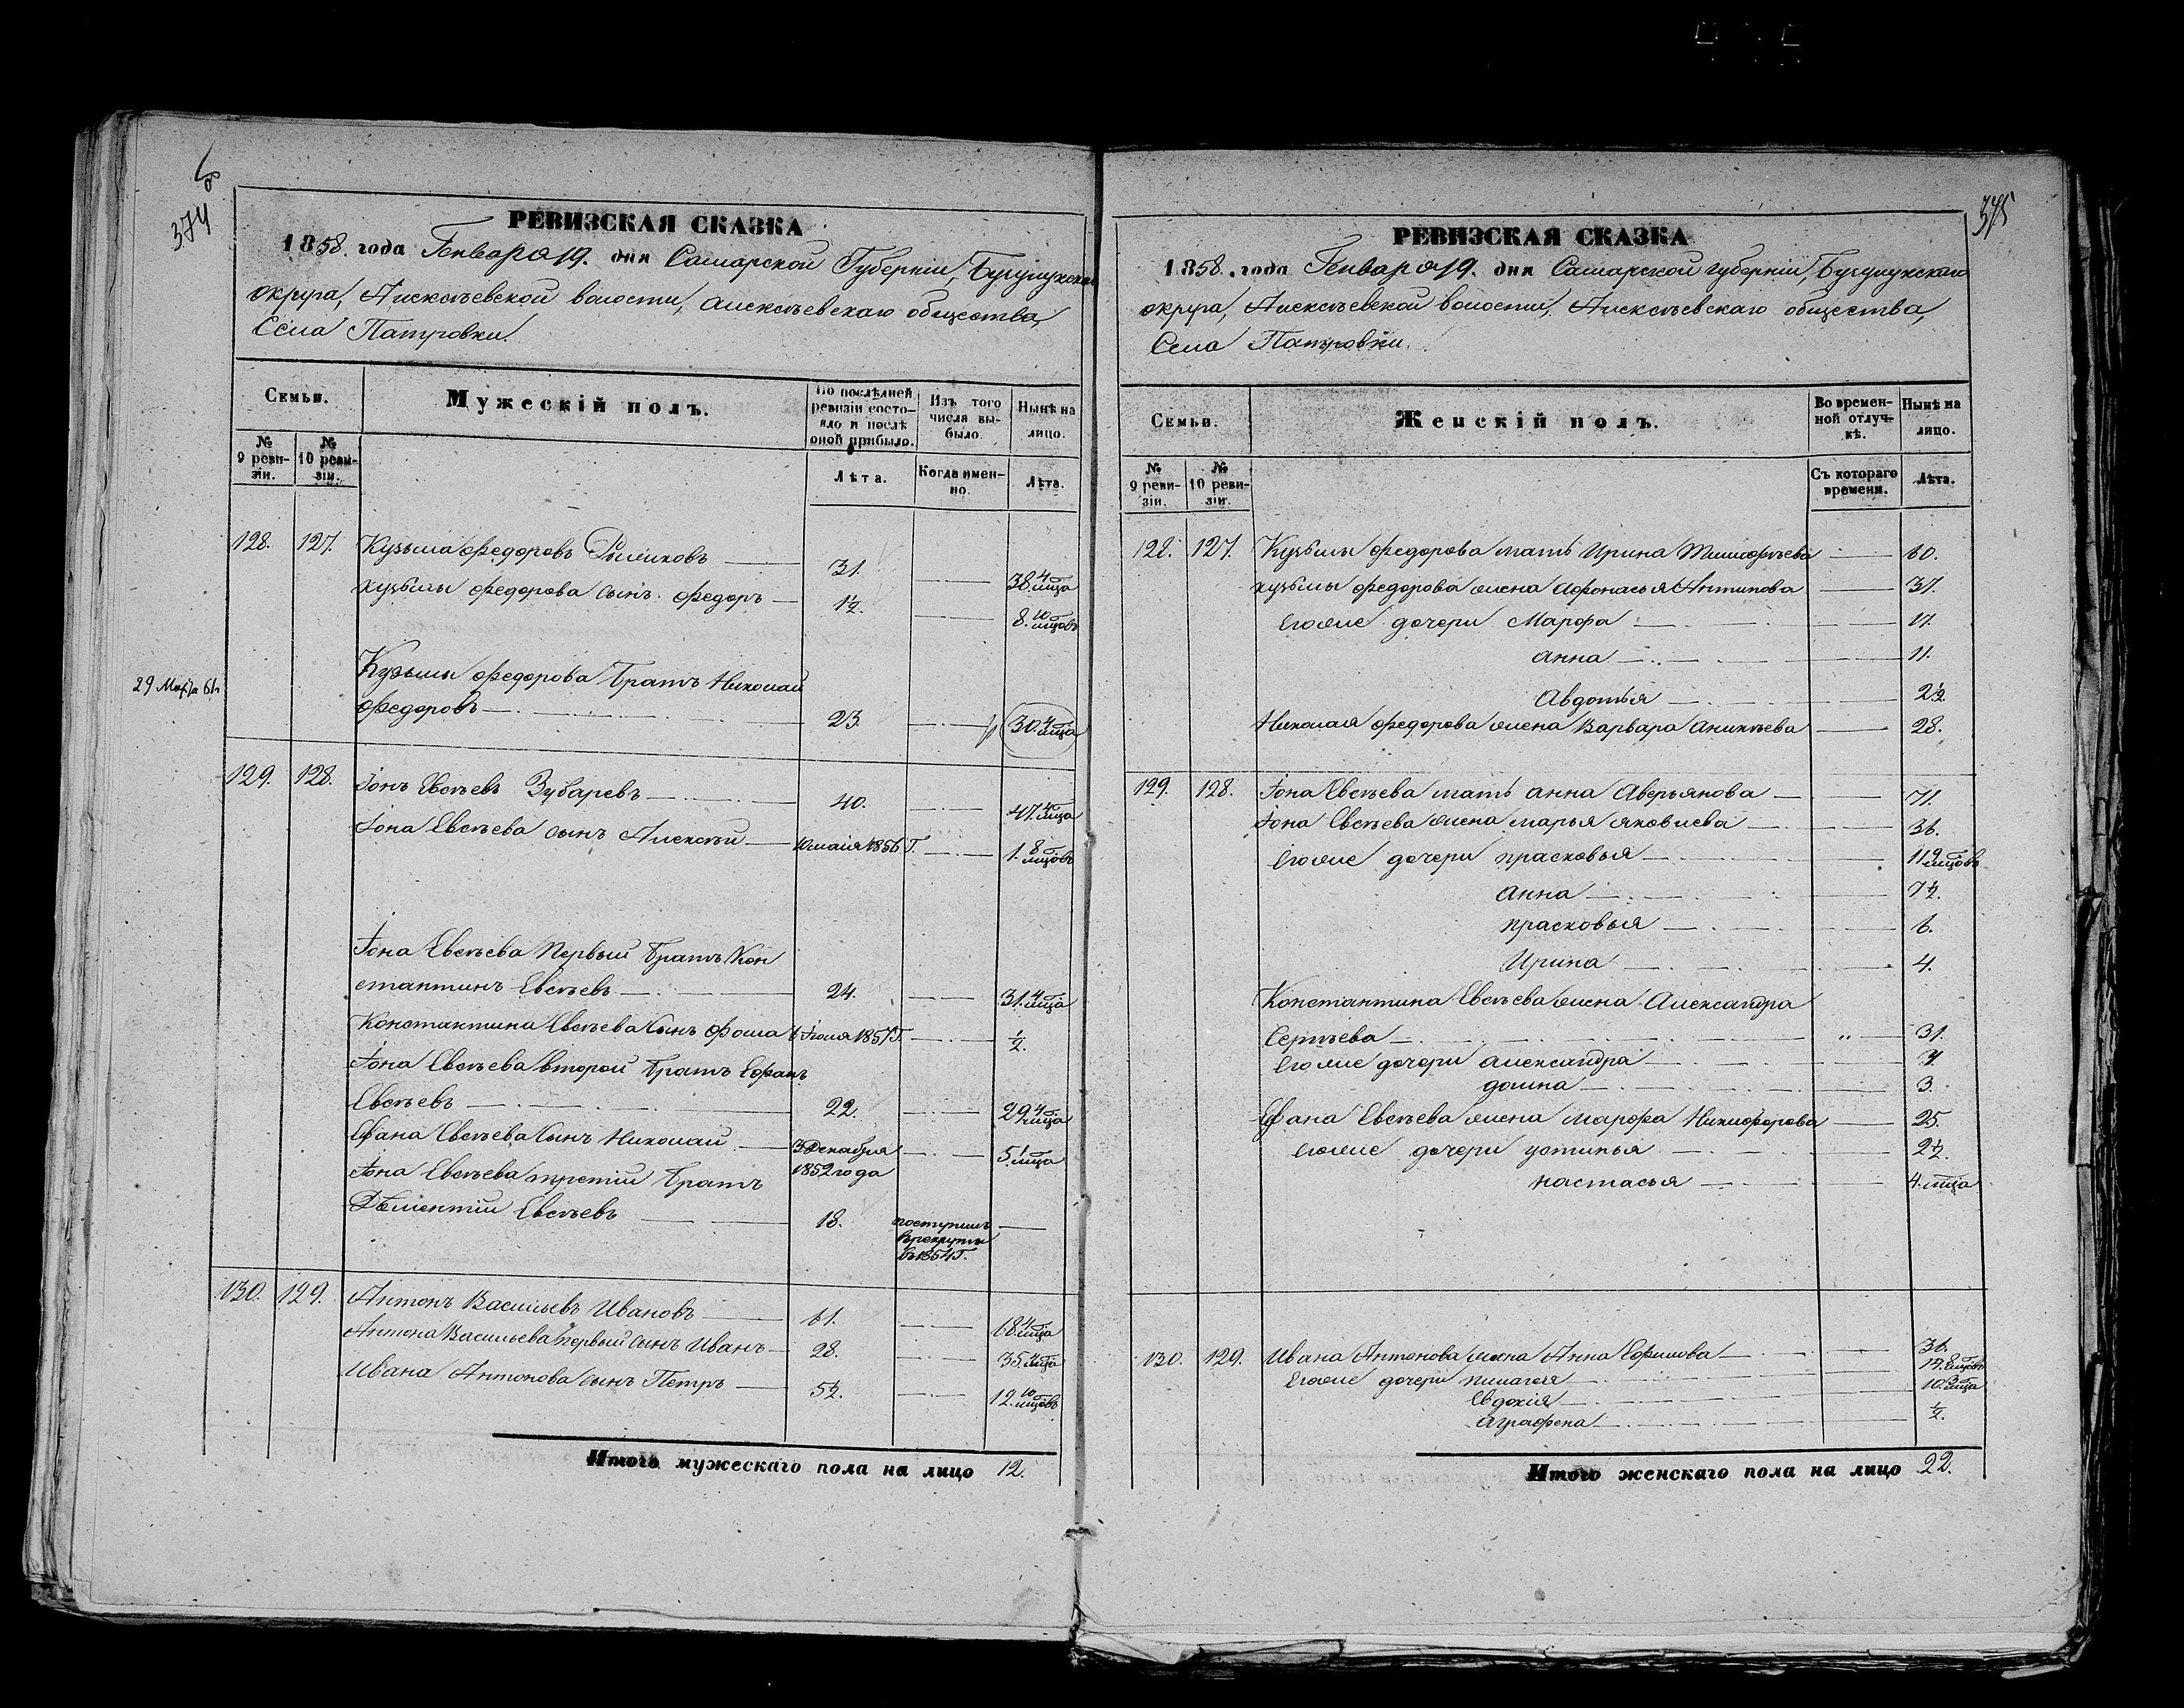 374
РЕВИЗСКАЯ СКАЗКА
1858. года Генваря 19. дня Самарской Губерніи,
округа, Алексѣевской волости, Алексѣевскаго общества,
Села Патровки.
Семьи.
Мужескій полъ.
По послѣдней ревизіи состояло и послѣ оной прибыло.
Изъ того числа выбыло.
Нынѣ на лицо.
№ 9 ревизіи.
№ 10 ревизіи.
Лѣта.
Когда именно.
Лѣта.
128. 127. Кузьма Федоровъ 31. 38. 4 мца
Кузьмы Федорова сынъ Федоръ 1½. 8. 10 мцовъ
Кузьмы Федорова братъ Николай
29 Марта
Федоровъ 23 30. 4 мца
129. 128. Іонъ Евсѣевъ Зубаревъ 40. 47. 4 мца
Іона Евсѣева сынъ Алексѣй 10 маія 1856 Г. 1. 8 мцовъ
Іона Евсѣева первый братъ Кон
стантинъ Евсѣевъ 24. 31. 4 мца
Константина Евсѣева сынъ Фома 1857 Г. ½.
Іона Евсѣева второй братъ Ефанъ
Евсѣевъ 22. 29. 4 мца
Ефана Евсѣева сынъ Николай 3 Декабря 5. 1 мца
1852 года
Іона Евсѣева третій братъ
Дѣментій Евсѣевъ 18. поступилъ
в рекруты
въ 1854 Г.
130. 129. Антонъ Васильевъ Ивановъ 61. 68. 4 мца
Антона Васильева первый сынъ Иванъ 28. 35. 4 мца
Ивана Антонова сынъ Петръ 5½. 12. 10 мцовъ
Итого мужескаго пола на лицо 12.
375
РЕВИЗСКАЯ СКАЗКА
1858. года Генваря 19. дня Самарской губерніи,
округа, Алексѣевской волости, Алексѣевскаго общества,
Села Патровки.
Семьи.
Женскій полъ.
Во временной отлучкѣ.
Нынѣ на лицо.
№ 9 ревизіи.
№ 10 ревизіи.
Съ котораго времени.
Лѣта.
128. 127. Кузьмы Федорова мать Ирина Тимофѣева 60.
Кузьмы Федорова жена Афонасья Антипова 37.
Егоже дочери Марфа 17.
Анна 11.
Авдотья 2½
Николая Федорова жена Варвара Аникѣева 28.
129. 128. Іона Евсѣева мать Анна Аверьянова 71.
Іона Евсѣева жена Марья Яковлева 36.
Егоже дочери Прасковья 11 9 мцовъ
Анна 7½.
Прасковья 6.
Ирина 4.
Константина Евсѣева жена Александра
Сергѣева 31.
Егоже дочери Александра
Домна 3.
Ефана Евсѣева жена Марфа Никифорова 25.
Егоже дочери Устинья 2½.
Настасья 4. мца
130. 129. Ивана Антонова жена Анна Ефимова 36.
Егоже дочери Пилагея
Евдокія 10. 3 мца
Аграфена ½.
Итого женскаго пола на лицо 22.